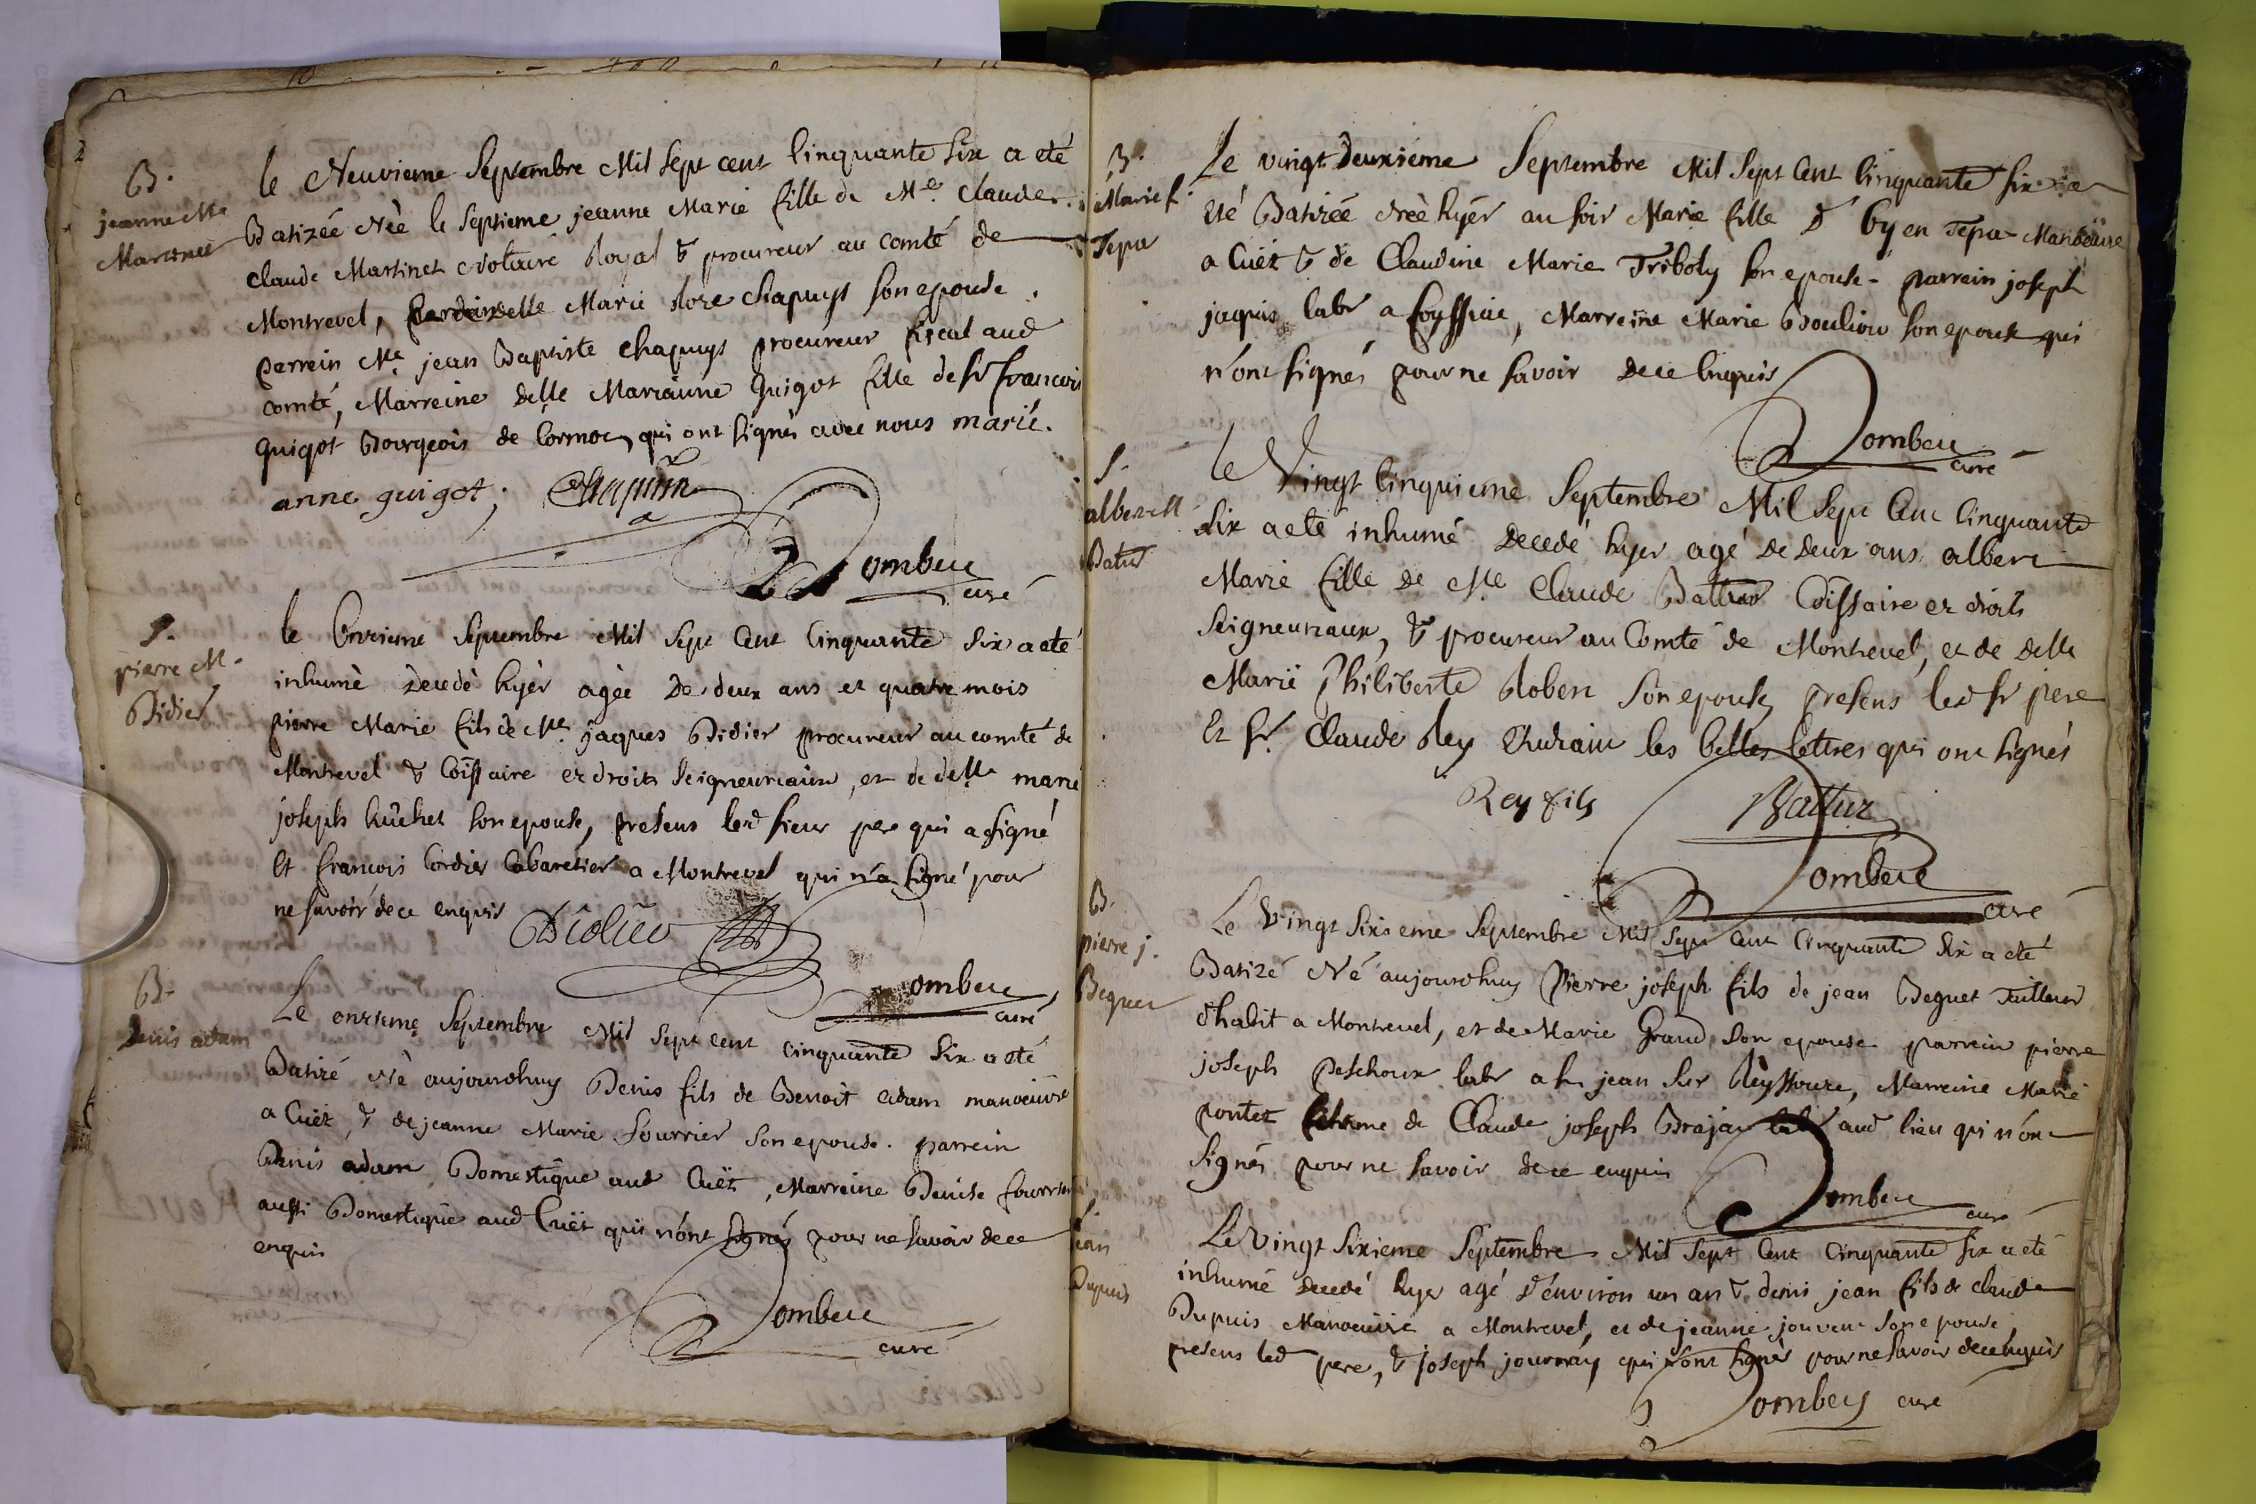 B.
jeanne Mie
Martinet
le Neuvieme Septembre Mil Sept cent Cinquante Six a eté
Batizéé Néè le Septieme jeanne Marie fille de Me. Claude
Claude Martinet Notaire Royal & procureur au comté de
Montrevel, Marie Roze Chapuys Son epouse.
parrein Me. jean Baptiste Chapuys procureur fiscal aud
comté, Marreine delle Marianne Guigot fille de Sr francois
Guigot Bourgeois de Cormoz, qui ont Signés avec nous marie.
anne guigot;
Dombeÿ
curé
S.
pierre M.
Didier
le Onzieme Septembre Mil Sept Cent Cinquante Six a eté
inhumè Decedè hyèr agéé De deux ans et quatre mois
pierre Marie fils de Me. jaques Didier procureur au comté de
Montrevel & Coissaire ez droits Seigneuriaux, et de delle marie
joseph hûchet Son epouse, presens led Sieur pere qui a signé
Et francois Cordier Cabaretier a Montrevel qui n'a signé pour
ne savoir de ce enquis
Dombeÿ
curé
B.
Denis adam
Le onzieme Septembre Mil Sept cent cinquante Six a eté
Batizé Nè aujourdhuy Denis fils de Benoit Adam manoeuvre
a Cuët, & de jeanne Marie fourrier Son epouse. parrein
Denis adam Domestique aud Cuët, Marreine Denise fourrier
aussi Domestique aud Cuët qui n'ont signés pour ne savoir de ce
enquis
Dombeÿ
curé
B.
Marie f.
Tepa
Le vingt Deuxieme Septembre Mil Sept Cent Cinquante six a
eté Batizéé Néè hyér au soir Marie fille d
a Cuët & de Claudine Marie Triboly Son epouse. parrein joseph
jaquis labr a foyssiac, Marreine Marie Son epouse qui
n'ont signés pour ne savoir de ce Enquis
Dombeÿ
curé
S.
albert M
Battur
le Vingt Cinquieme Septembre Mil Sept Cent Cinquante
Six a eté inhumé Decedé hyer agé De deux ans albert
Marie fille de Me Claude Battur Coissaire ez droits
Seigneuriaux, & procureur au Comté de Montrevel, et de delle
Marie Philiberte Robert Son epouse, presens led Sr pere
Et Sr. Claude Rey Etudiant les belles lettres qui ont signés
Rey fils
Battur
Dombeÿ
curé
B.
pierre j.
Beguet
Le Vingt Sixieme Septembre Mil Sept Cent Cinquante Six a eté
Batizé Né aujourdhuy Pierre joseph fils de jean Beguet Tailleur
d'habit a Montrevel, et de Marie Grand Son epouse parrein pierre
joseph Peschoux labr a St jean Sur Reyssouze, Marreine Marie
pontet femme de Claude joseph aud lieu qui n'ont
Signés pour ne savoir de ce enquis
Dombeÿ
curé
S.
jean
Dupuis
Le Vingt Sixieme Septembre Mil Sept Cent Cinquante Six a eté
inhumé Decedé hyer agé D'environ un an & demi jean fils de claude
Dupuis Manoeuvre a Montrevel, et de jeanne jouvent Son epouse
presens led pere, & joseph qui n'ont signés pour ne savoir de ce enquis
Dombeÿ curé